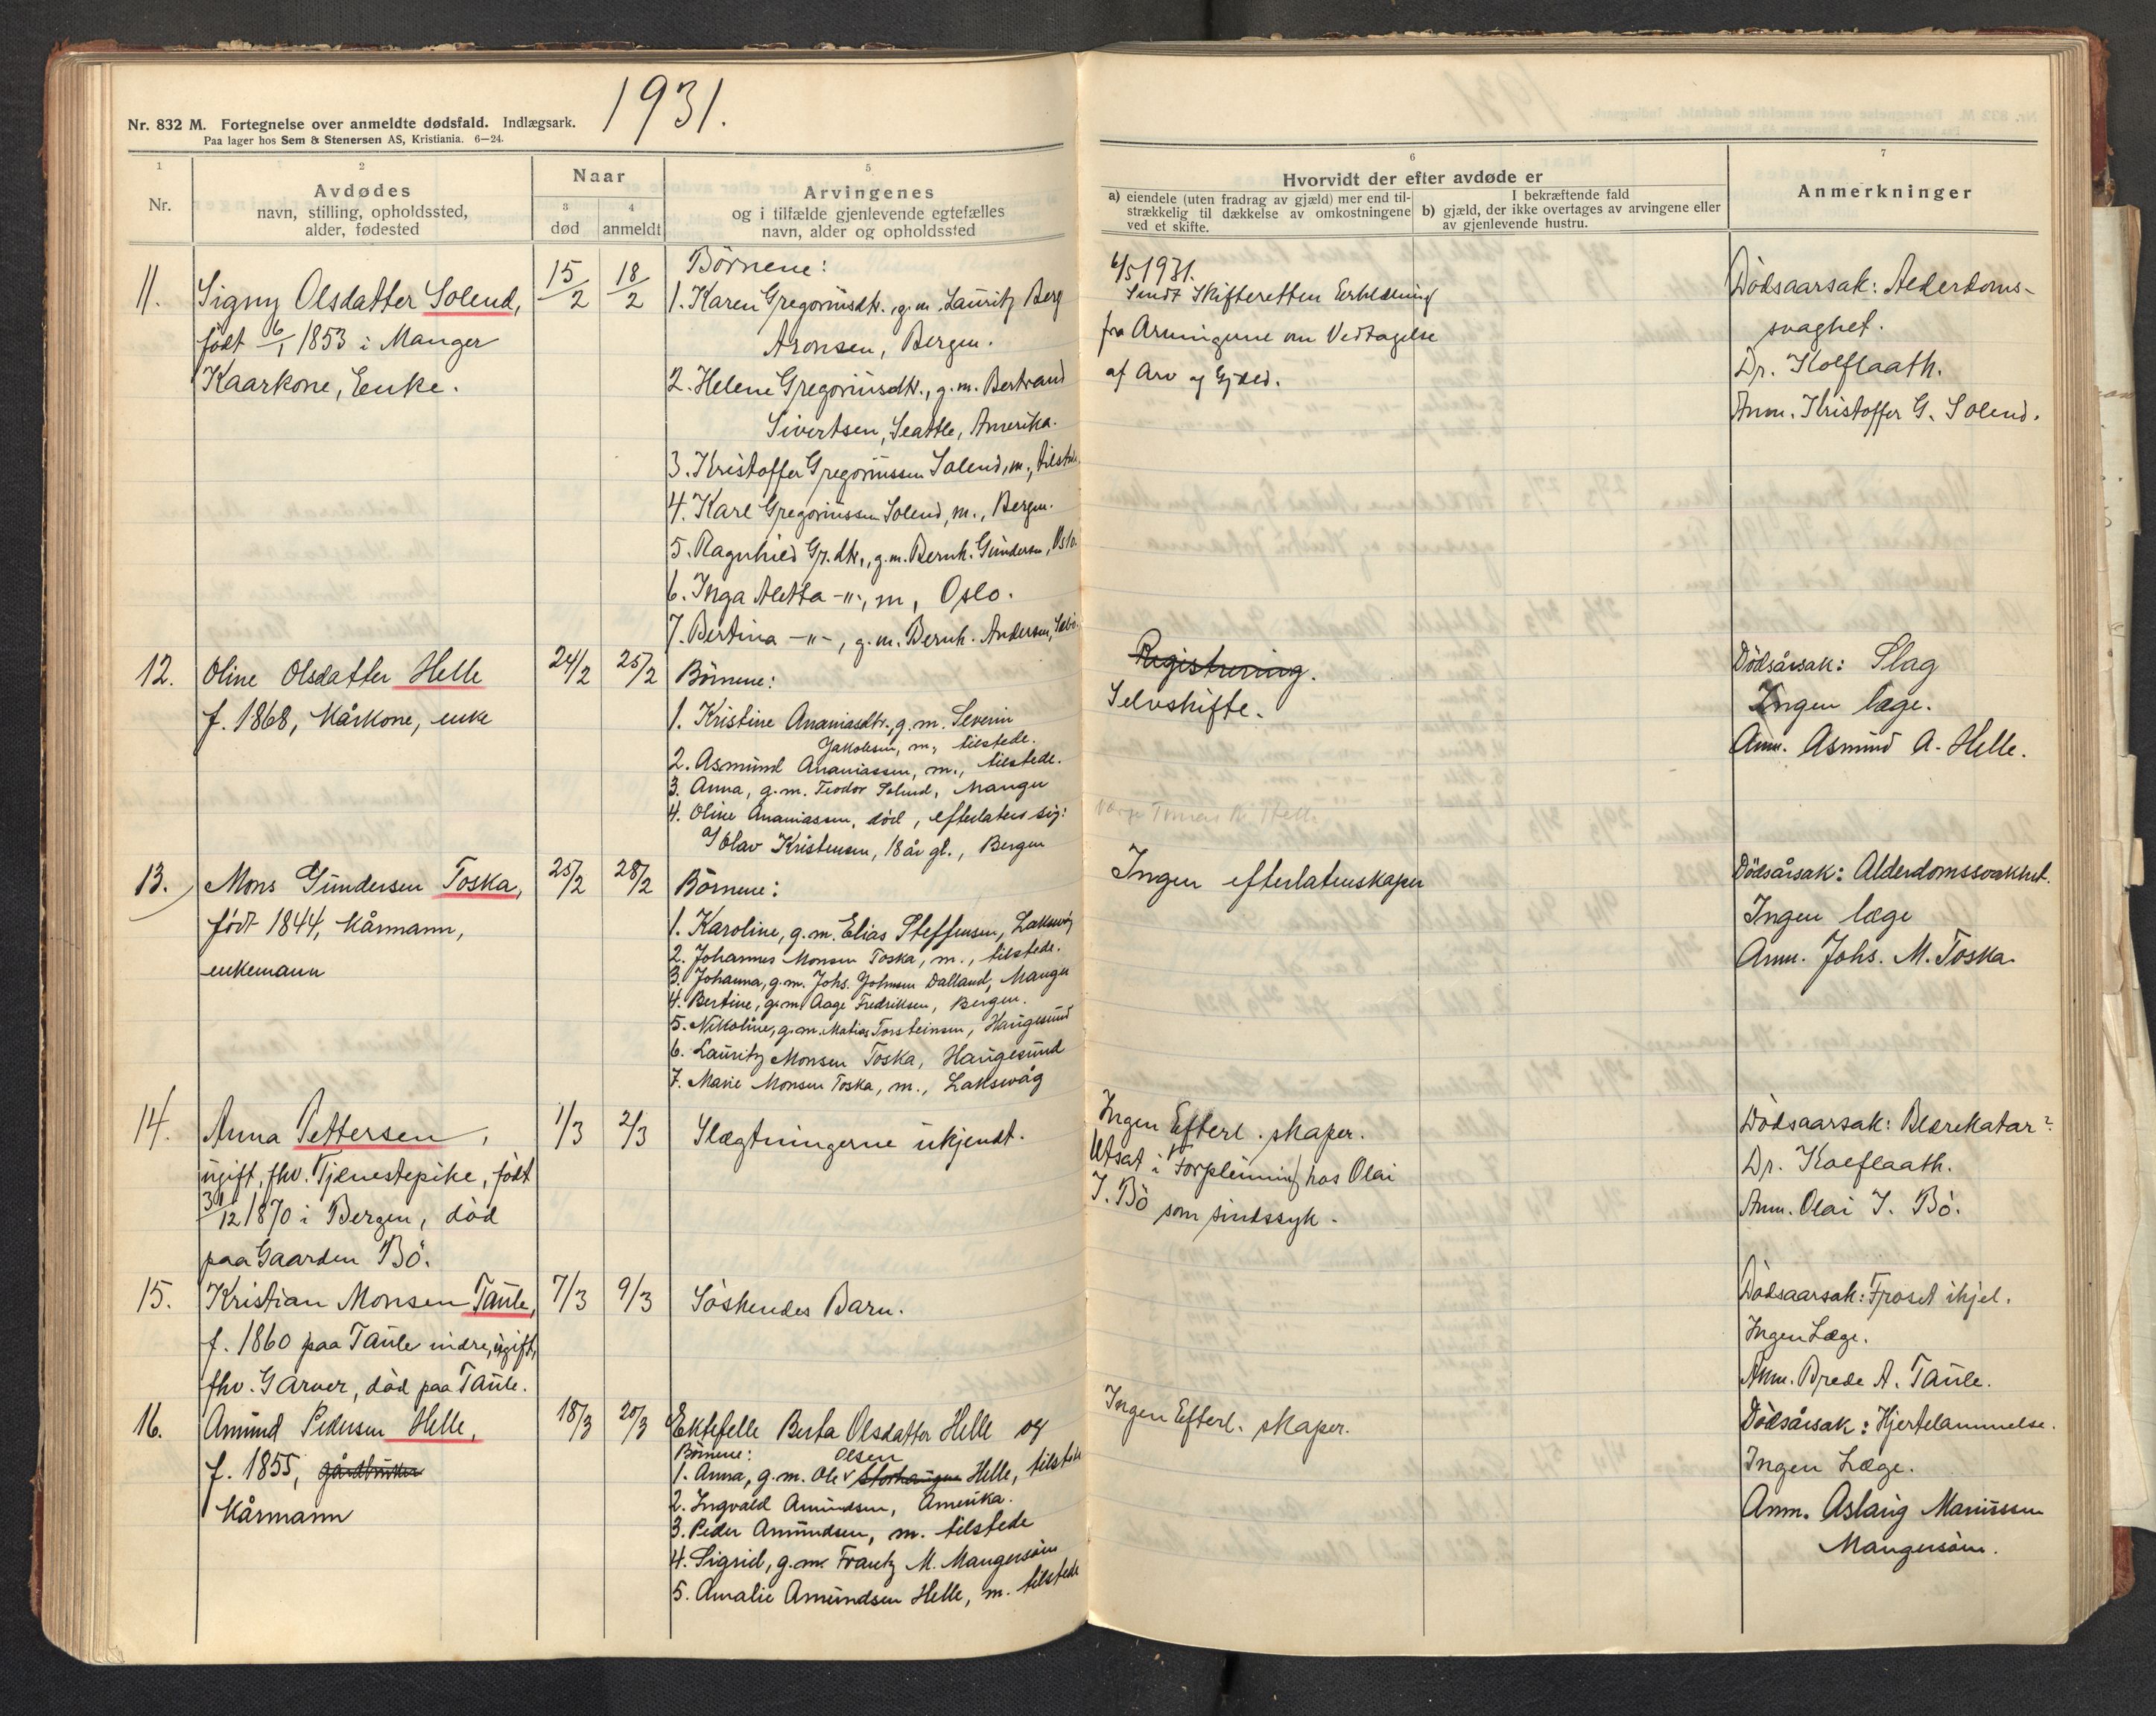 1931.
Nr. 832 M. Fortegnelse over anmeldte dødsfald. Indlægsark.
Paa lager hos Sem & Stenersen AS, Kristiania. 6—24.
1
Nr.
2
Avdødes
navn, stilling, opholdssted,
alder, fødested
Naar
3
død
4
anmeldt
5
Arvingenes
og i tilfælde gjenlevende egtefælles
navn, alder og opholdssted
6
Hvorvidt der efter avdøde er
a) eiendele (uten fradrag av gjæld) mer end til-
strækkelig til dækkelse av omkostningene
ved et skifte.
I bekræftende fald
b) gjæld, der ikke overtages av arvingene eller
av gjenlevende hustru.
7
Anmerkninger
11.
Signy Olsdatter Solend,
født 6/1 1853 i Manger
Kaarkone, Enke.
15/2
18/2
Börnene:
1. Karen Gregoriusdtr., g.m. Lauritz Berg
Aronsen, Bergen.
2. Helene Gregoriusdtr., g.m. Bertrand
Sivertsen, Seattle, Amerika.
3. Kristoffer Gregoriussen Solend, m.,
4. Karl Gregoriussen Solend, m., Bergen.
5. Ragnhild Gr.dtr., g.m. Bernh. Gundersen, Oslo.
6. Inga Aletta -"-, m, Oslo.
7. Bertina -"-, g.m. Bernh. Andersen,
6/5 1931.
Sendt Skifteretten Erklæring
fra Arvingene om Vedtagelse
af Arv og Gjæld.
Dödsaarsak: Alderdoms-
svaghet.
Dr. Kolflaath.
Anm. Kristoffer G. Solend.
12.
Oline Olsdatter Helle
f. 1868, Kårkone, enke
24/2
25/2
Börnene:
1. Kristine Ananiasdtr., g.m. Severin
Jakobsen, m., tilstede.
2. Asmund Ananiassen, m., tilstede.
3. Anna, g.m. Teodor Solend, Manger
4. Oline Ananiassen, död, efterlater sig:
Olav Kristensen, 18 år gl., Bergen
Registrering.
Selvskifte.
Dödsårsak: Slag
Ingen læge.
Anm. Asmund A. Helle.
13.
Mons Gundersen Toska,
født 1844, Kårmann,
enkemann
25/2
28/2
Börnene:
1. Karoline, g.m. Elias Steffensen, Laksevåg
2. Johannes Monsen Toska, m., tilstede.
3. Johanna, g.m. Johs. Johnsen Dalland, Manger
4. Bertine, g.m. Aage Fredriksen, Bergen.
5. Nikoline, g.m. Matias Torsteinsen, Haugesund
6. Lauritz Monsen Toska, Haugesund
7. Marie Monsen Toska, m., Laksevåg
Ingen efterlatenskaper
Dödsårsak: Alderdomssvakhet.
Ingen læge
Anm. Johs. M. Toska.
14.
Anna Pettersen,
ugift, fhv. Tjenestepike, født
31/12 1870 i Bergen, död
paa Gaarden Bö.
1/3
2/3
Slægtningerne ukjendt.
Ingen Efterl. skaper.
Utsat i Forpleining hos Olai
J. Bö som sindssyk.
Dödsaarsak: Blærekatar?
Dr. Kolflaath.
Anm. Olai J. Bö.
15.
Kristian Monsen Taule,
f. 1860 paa Taule indre, ugift,
fhv. Garver, död paa Taule.
7/3
9/3
Söskendes Barn.
Dödsaarsak: Froset ihjel.
Ingen Læge.
Anm. Brede A. Taule.
16.
Amund Pedersen Helle,
f. 1855, gårdbruker
Kårmann
18/3
20/3
Ektefelle Berta Olsdatter Helle og
Börnene:
Olsen
1. Anna, g.m. Ole Storhaugen Helle, tilstede
2. Ingvald Amundsen, Amerika.
3. Peder Amundsen, m. tilstede
4. Sigrid, g.m. Frantz M. Mangersöm
5. Amalie Amundsen Helle, m. tilstede
Ingen Efterl. skaper.
Dödsårsak: Hjertelammelse.
Ingen Læge.
Anm. Aslaug Mariussen
Mangersöm.